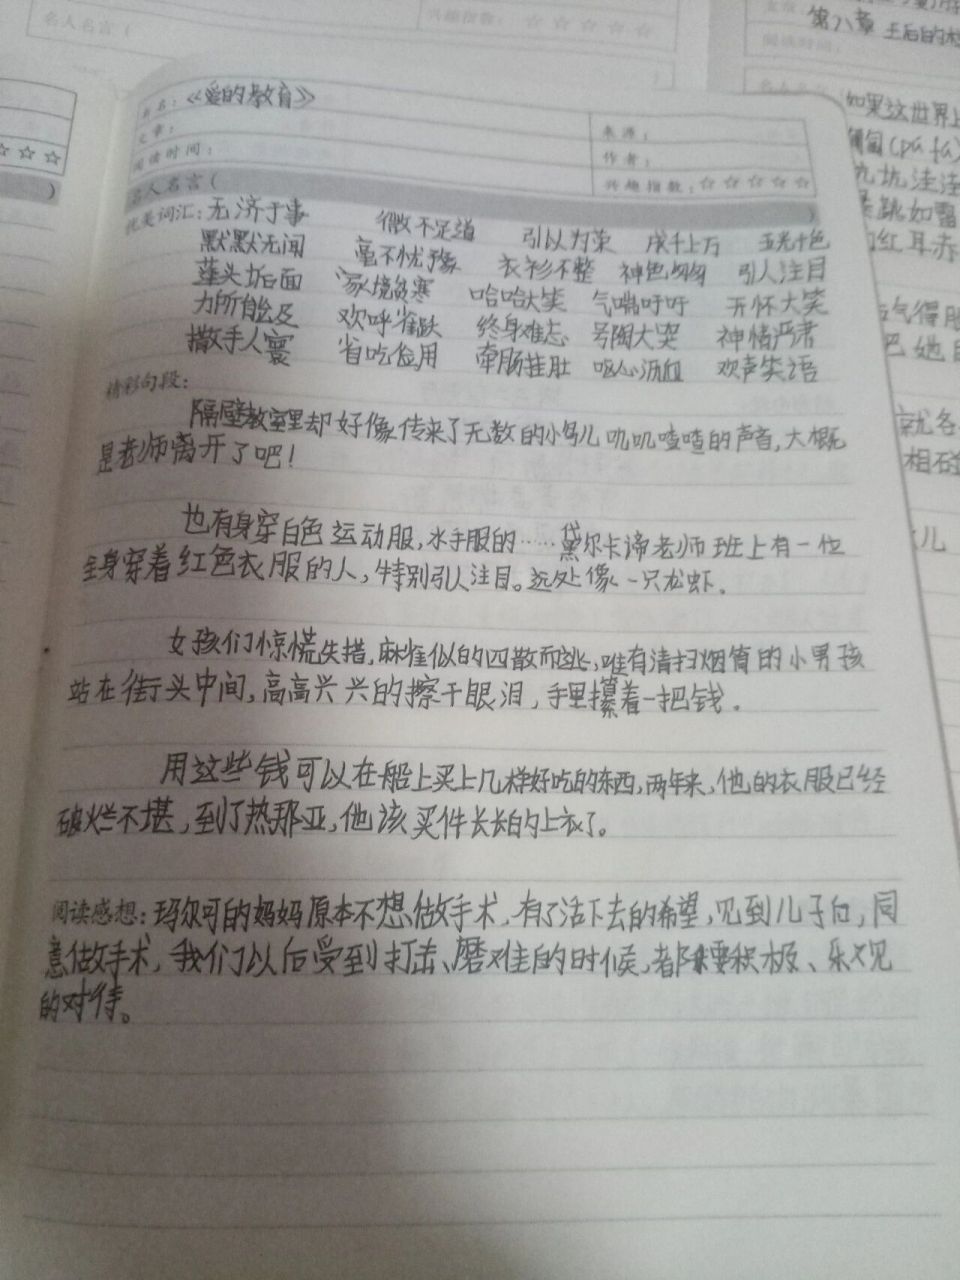 名人名言(
兴趣指数:☆☆☆☆☆
第八章 王后的
阅读时间:
书名:《爱的教育》
文章:
来源:
阅读时间:
作者:
名人名言(
兴趣指数:☆☆☆☆☆
优美词汇:无济于事 微不足道 引以为荣 成千上万 五光十色
默默无闻 毫不忧豫 衣衫不整 神色匆匆 引人注目
蓬头垢面 家境贫寒 哈哈大笑 气喘吁吁 开怀大笑
力所能及 欢呼雀跃 终身难忘 号陶大哭 神情严肃
撒手人寰 省吃俭用 牵肠挂肚 呕心沥血 欢声笑语
精彩句段:
隔壁教室里却好像传来了无数的小鸟儿叽叽喳喳的声音,大概
是老师离开了吧!
也有身穿白色运动服,水手服的……黛尔卡谛老师班上有一位
全身穿着红色衣服的人,特别引人注目。远处像一只龙虾.
女孩们惊慌失措,麻雀似的四散而逃,唯有清扫烟筒的小男孩
站在街头中间,高高兴兴的擦干眼泪,手里攥着一把钱.
用这些钱可以在船上买上几样好吃的东西,两年来,他的衣服已经
破烂不堪,到了热那亚,他该买件长长的上衣了。
阅读感想:玛尔可的妈妈原本不想做手术,有了活下去的希望,见到儿子后,同
意做手术,我们以后受到打击、磨难的时候,都要积极、乐观
的对待。
如果这世界上
匍匐(pú fú)
坑坑洼洼
红耳赤
气得
把她
就各
相碰
儿